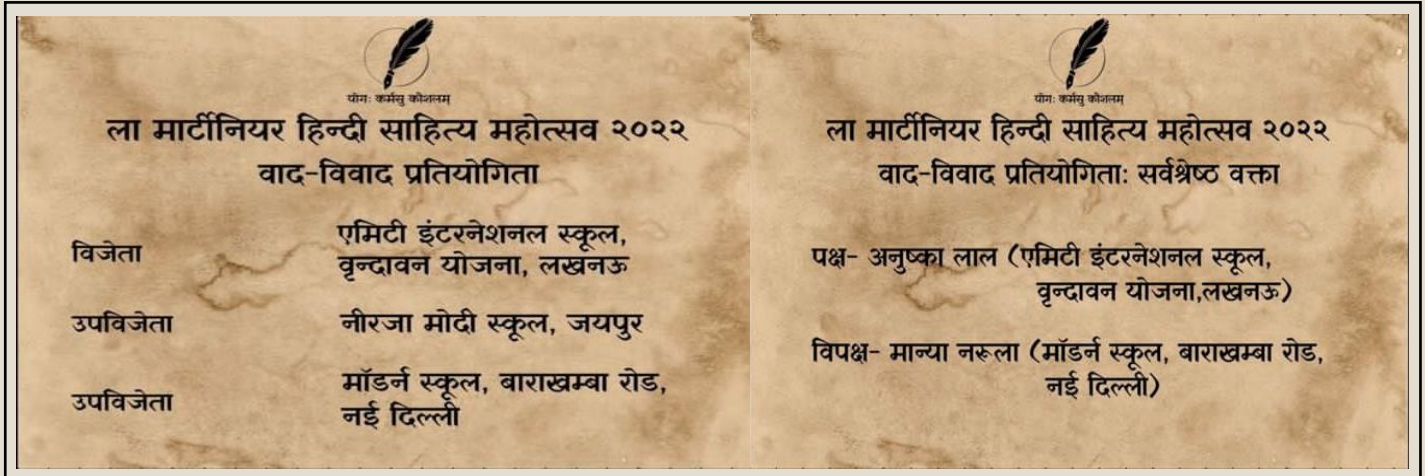 योगः कर्मसु कौशलम्
ला मार्टीनियर हिन्दी साहित्य महोत्सव २०२२
वाद-विवाद प्रतियोगिता
विजेता
एमिटी इंटरनेशनल स्कूल,
वृन्दावन योजना, लखनऊ
उपविजेता
नीरजा मोदी स्कूल, जयपुर
उपविजेता
मॉडर्न स्कूल, बाराखम्बा रोड,
नई दिल्ली
योगः कर्मसु कौशलम्
ला मार्टीनियर हिन्दी साहित्य महोत्सव २०२२
वाद-विवाद प्रतियोगिताः सर्वश्रेष्ठ वक्ता
पक्ष- अनुष्का लाल (एमिटी इंटरनेशनल स्कूल,
वृन्दावन योजना,लखनऊ)
विपक्ष- मान्या नरूला (मॉडर्न स्कूल, बाराखम्बा रोड,
नई दिल्ली)